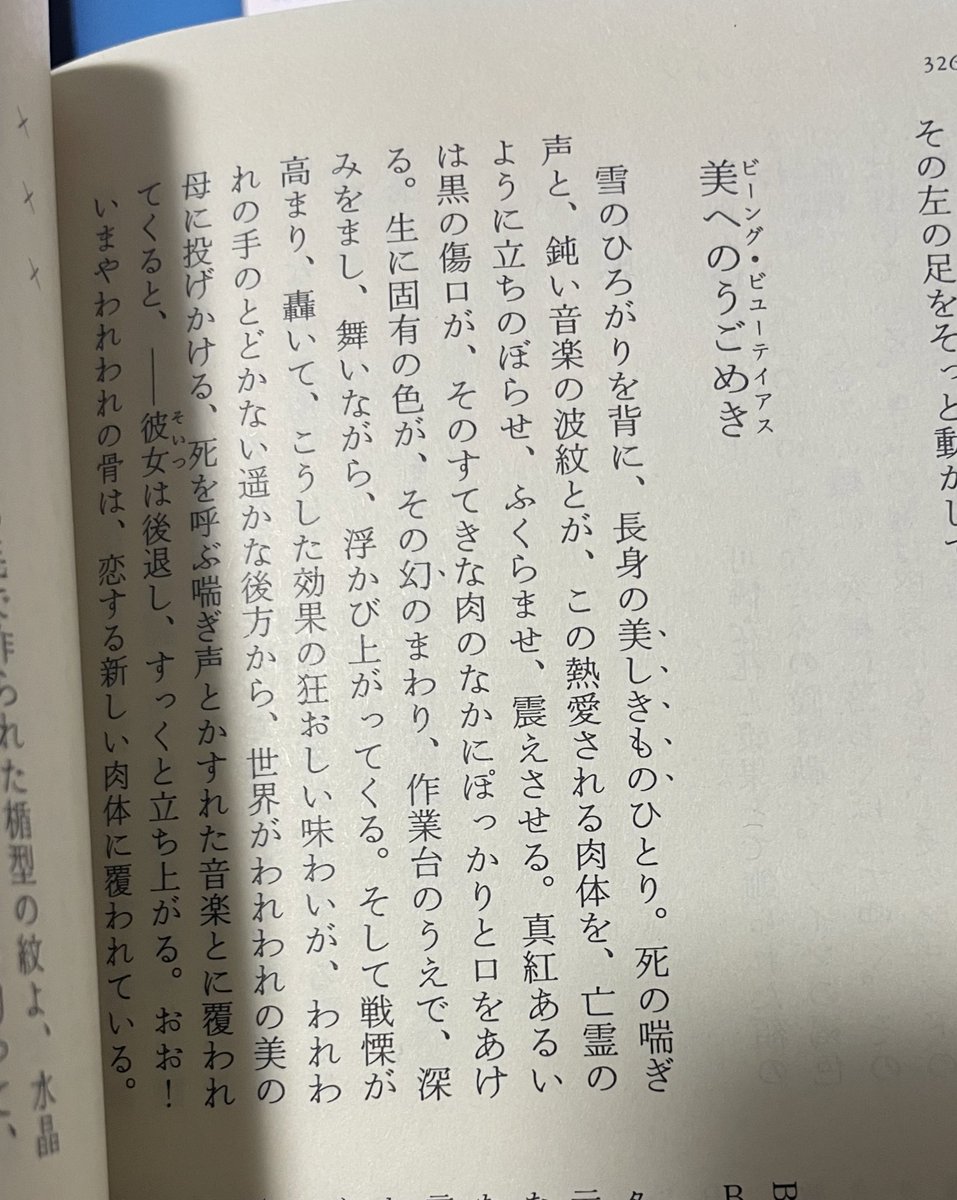 326
その左の足をそっと動かして
ビーング・ビューテイアス
美へのうごめき
雪のひろがりを背に、長身の美しきものひとり。死の喘ぎ
声と、鈍い音楽の波紋とが、この熱愛される肉体を、亡霊の
ように立ちのぼらせ、ふくらませ、震えさせる。真紅あるい
は黒の傷口が、そのすてきな肉のなかにぽっかりと口をあけ
る。生に固有の色が、その幻のまわり、作業台のうえで、深
みをまし、舞いながら、浮かび上がってくる。そして戦慄が
高まり、轟いて、こうした効果の狂おしい味わいが、われわ
れの手のとどかない遥かな後方から、世界がわれわれの美の
母に投げかける、死を呼ぶ喘ぎ声とかすれた音楽とに覆われ
てくると、――彼女は後退し、すっくと立ち上がる。おお!
そいつ
いまやわれわれの骨は、恋する新しい肉体に覆われている。
られた楯型の紋よ、水晶